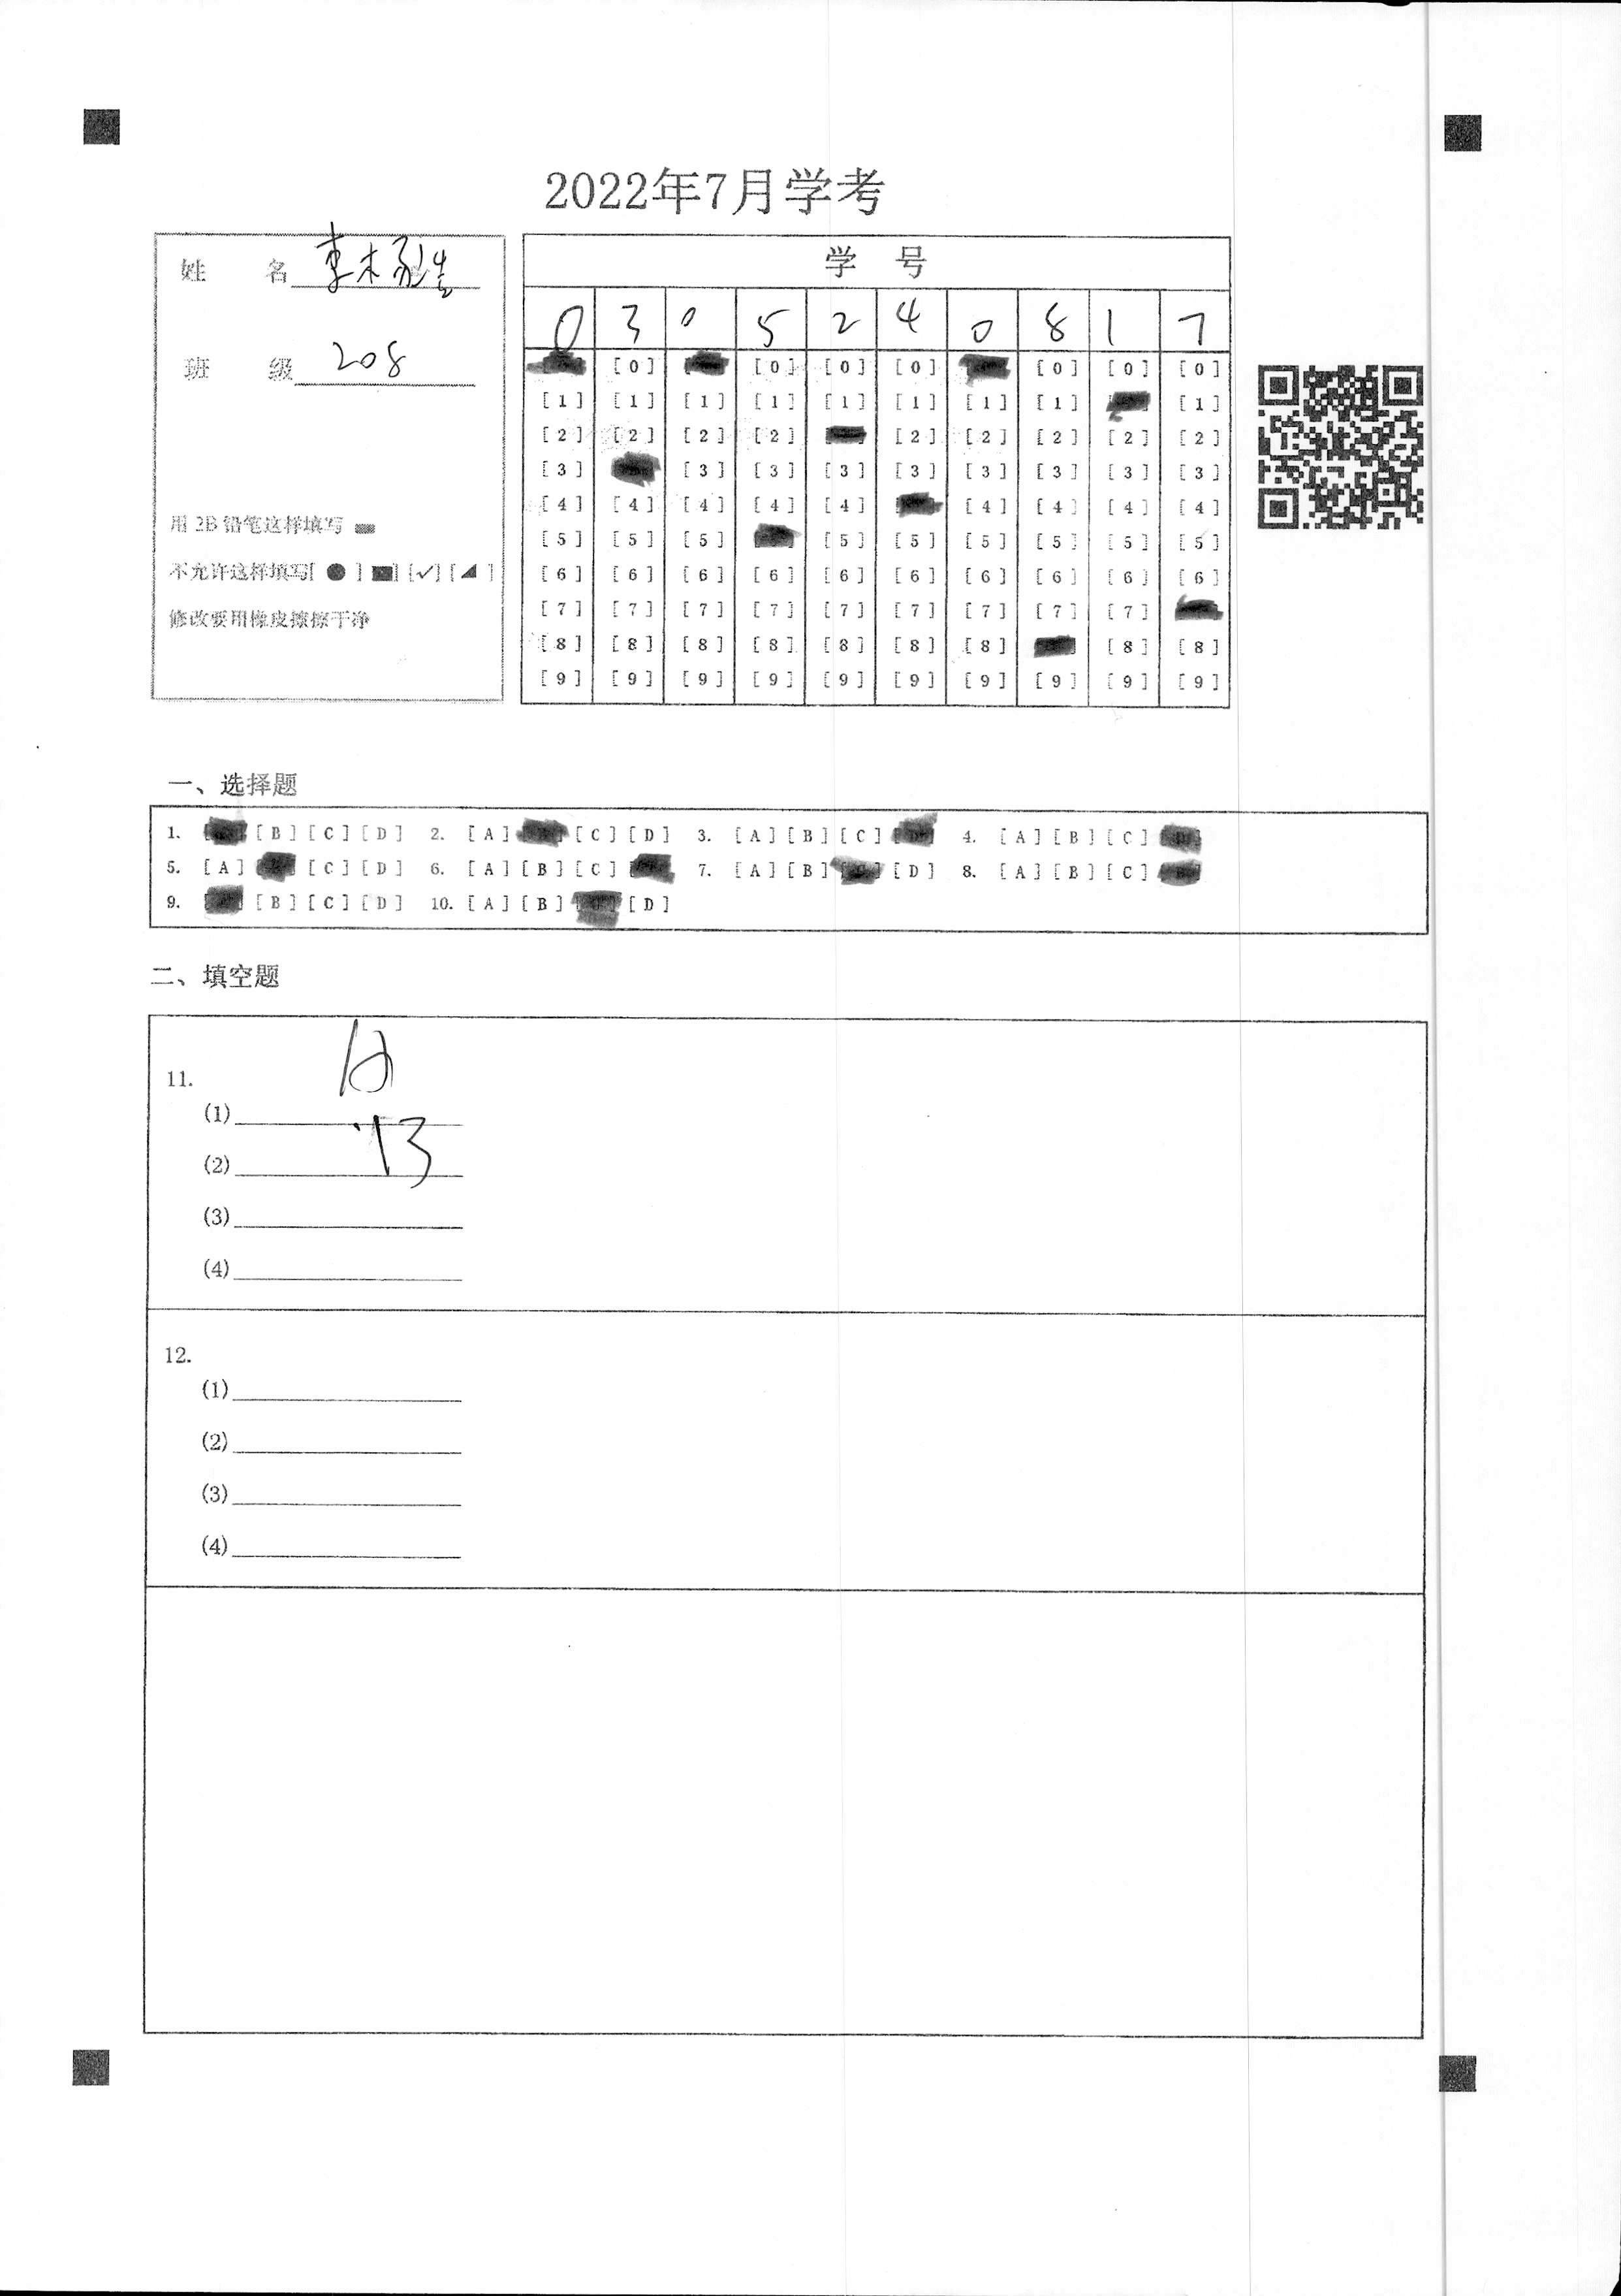 2022年7月学考
姓 名
班 级 208
用 2B 铅笔这样填写
不允许这样填写[ ● ] [■] [✓] [◢ ]
修改要用橡皮擦擦干净
学 号
0 3 0 5 2 4 0 8 1 7
[0] [0] [0] [0] [0] [0] [0]
[1] [1] [1] [1] [1] [1] [1] [1] [1]
[2] [2] [2] [2] [2] [2] [2] [2] [2]
[3] [3] [3] [3] [3] [3] [3] [3] [3]
[4] [4] [4] [4] [4] [4] [4] [4] [4]
[5] [5] [5] [5] [5] [5] [5] [5] [5]
[6] [6] [6] [6] [6] [6] [6] [6] [6] [6]
[7] [7] [7] [7] [7] [7] [7] [7] [7]
[8] [8] [8] [8] [8] [8] [8] [8] [8]
[9] [9] [9] [9] [9] [9] [9] [9] [9] [9]
一、选择题
1. [B] [C] [D] 2. [A] [C] [D] 3. [A] [B] [C] 4. [A] [B] [C]
5. [A] [C] [D] 6. [A] [B] [C] 7. [A] [B] [D] 8. [A] [B] [C]
9. [B] [C] [D] 10. [A] [B] [D]
二、填空题
11.
(1)
(2) 13
(3)
(4)
12.
(1)
(2)
(3)
(4)